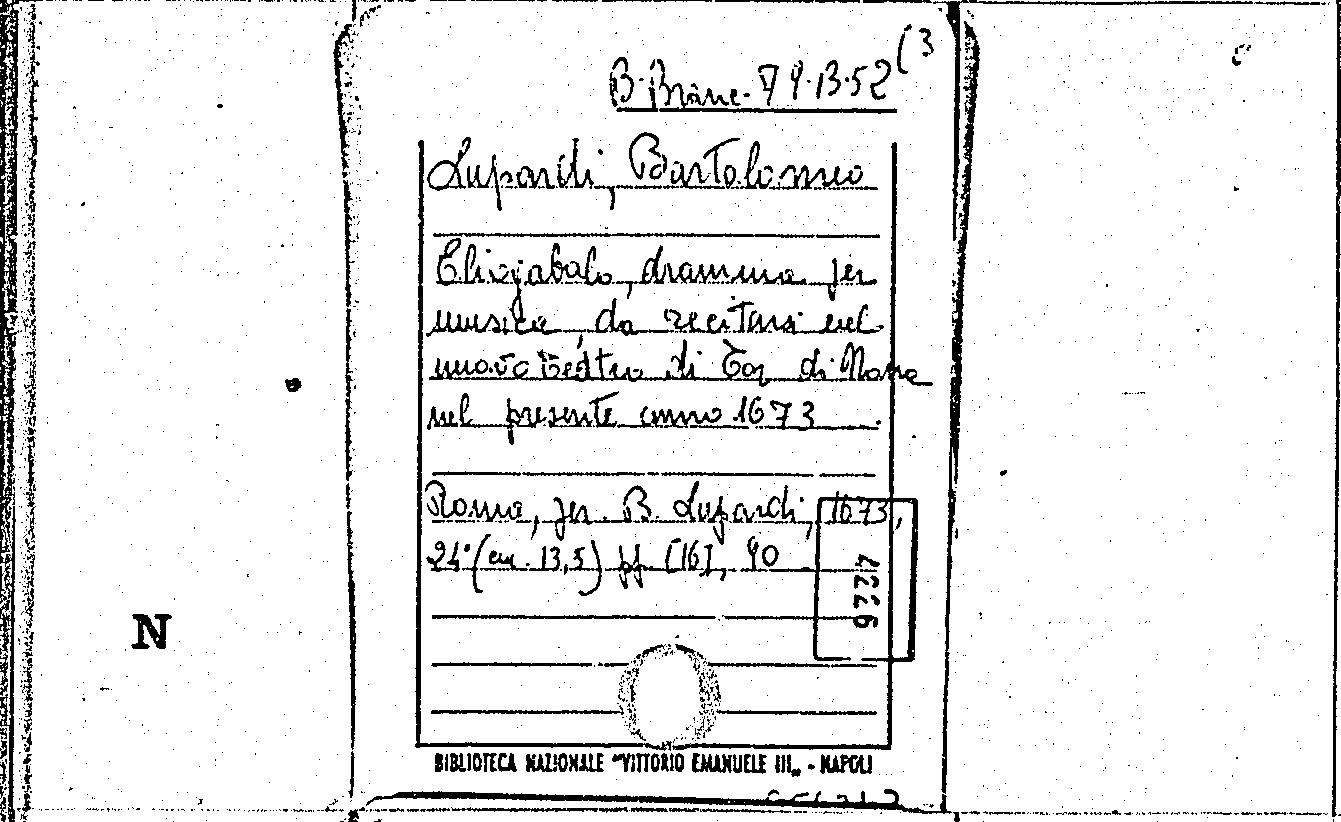 B. Branc. 79.B.52 (3
Lupardi, Bartolomeo
Eliogabalo, dramma per
musica, da recitarsi nel
nuovo Teatro di Tor di Nona
nel presente anno 1673
Roma, per B. Lupardi, 1673,
24° (cm. 13,5) pp. [16], 90
4226
N
BIBLIOTECA NAZIONALE "VITTORIO EMANUELE III„ - NAPOLI